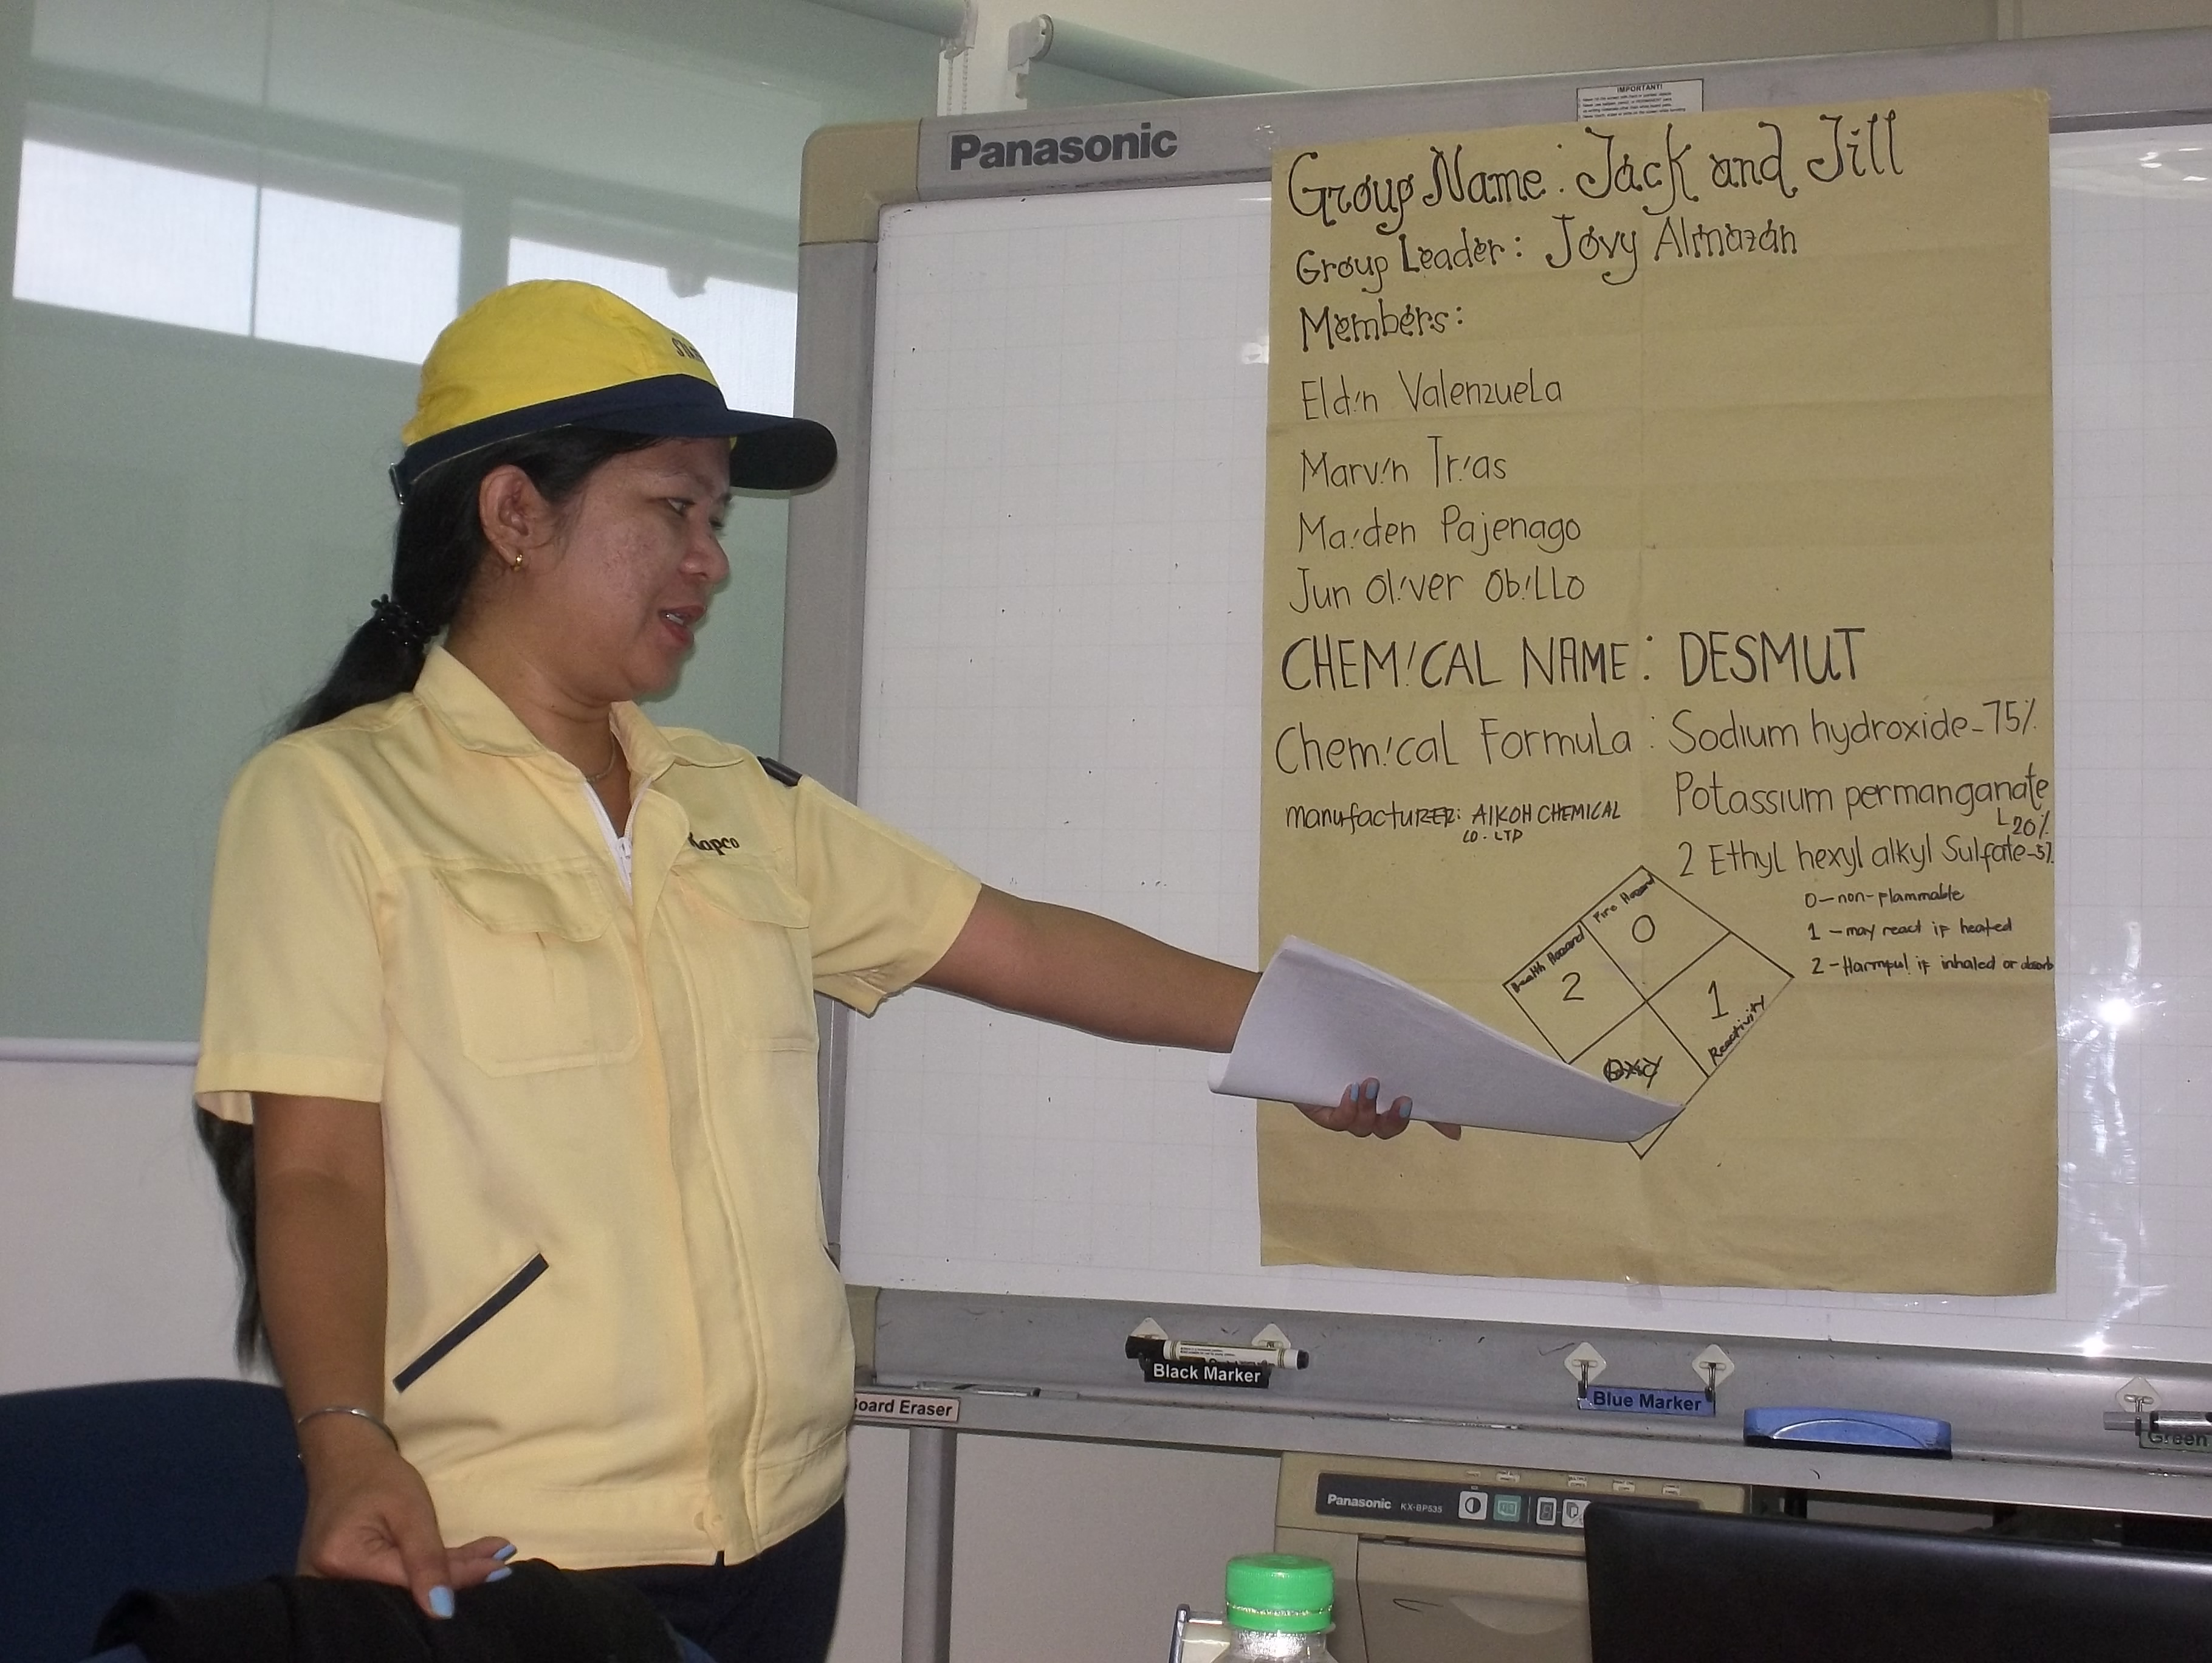 Panasonic
IMPORTANT!
Group Name: Jack and Jill
Group Leader: Jovy Almazan
Members:
Eldin Valenzuela
Marvin Trias
Maiden Pajenago
Jun Oliver Obillo
CHEMICAL NAME: DESMUT
Chemical Formula: Sodium hydroxide-75%
Potassium permanganate
20%
manufacturer: AIKOH CHEMICAL
CO. LTD
2 Ethyl hexyl alkyl Sulfate-5%
0-non-flammable
1-may react if heated
2-Harmful if inhaled or absorb
Fire Hazard
0
Health Hazard
2
1
Reactivity
Oxy
Kapco
Black Marker
Blue Marker
Green
Board Eraser
Panasonic KX-BP535